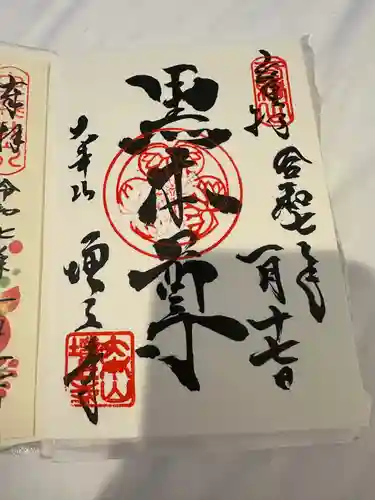 奉拝
令和七年
一月十七日
黒本尊
大本山
増上寺
奉拝
令和七年一月